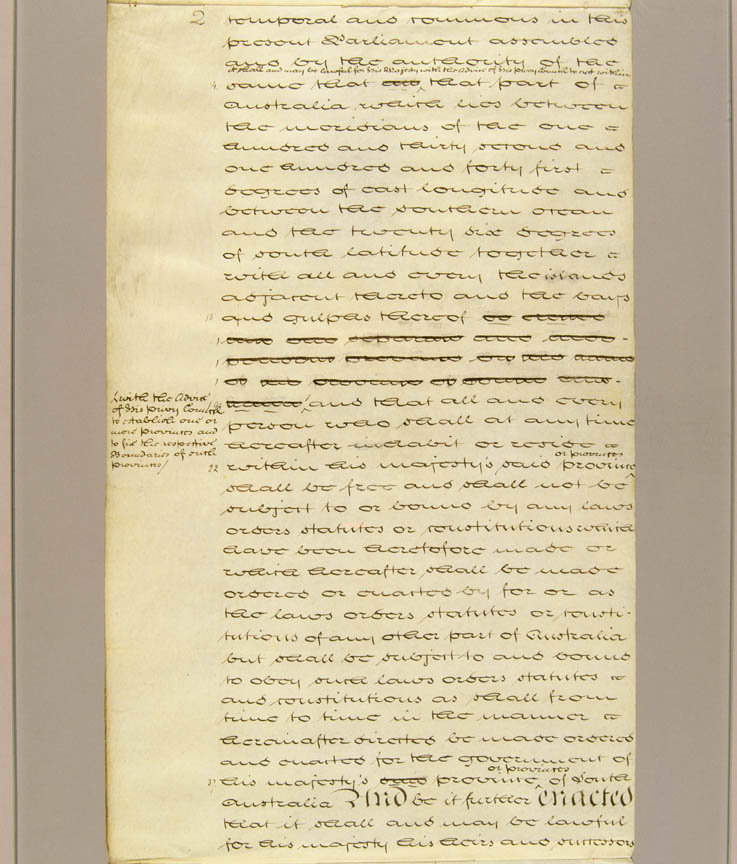 2
temporal and commons in this
present Parliament assembled
and by the authority of the
it shall and may be lawful for His Majesty with the Advice of His Privy Council to erect within
same that that part of
Australia which lies between
the meridians of the one
hundred and thirty second and
one hundred and forty first
degrees of east longitude and
between the southern ocean
and the twenty six degrees
of south latitude together
with all and every the islands
adjacent thereto and the bays
and gulphs thereof
and that all and every
with the Advice
of His Privy Council
to establish one or
more Provinces and
to fix the respective
Boundaries of such
Provinces/
person who shall at any time
hereafter inhabit or reside
or provinces
within his majesty's said province
22
shall be free and shall not be
subject to or bound by any laws
orders statutes or constitutions which
have been heretofore made or
which hereafter shall be made
ordered or enacted by for or as
the laws orders statutes or consti-
tutions of any other part of Australia
but shall be subject to and bound
to obey such laws orders statutes
and constitutions as shall from
time to time in the manner
hereinafter directed be made ordered
and enacted for the government of
or provinces
his majesty's said province of South
Australia And be it further enacted
that it shall and may be lawful
for his majesty his heirs and successors